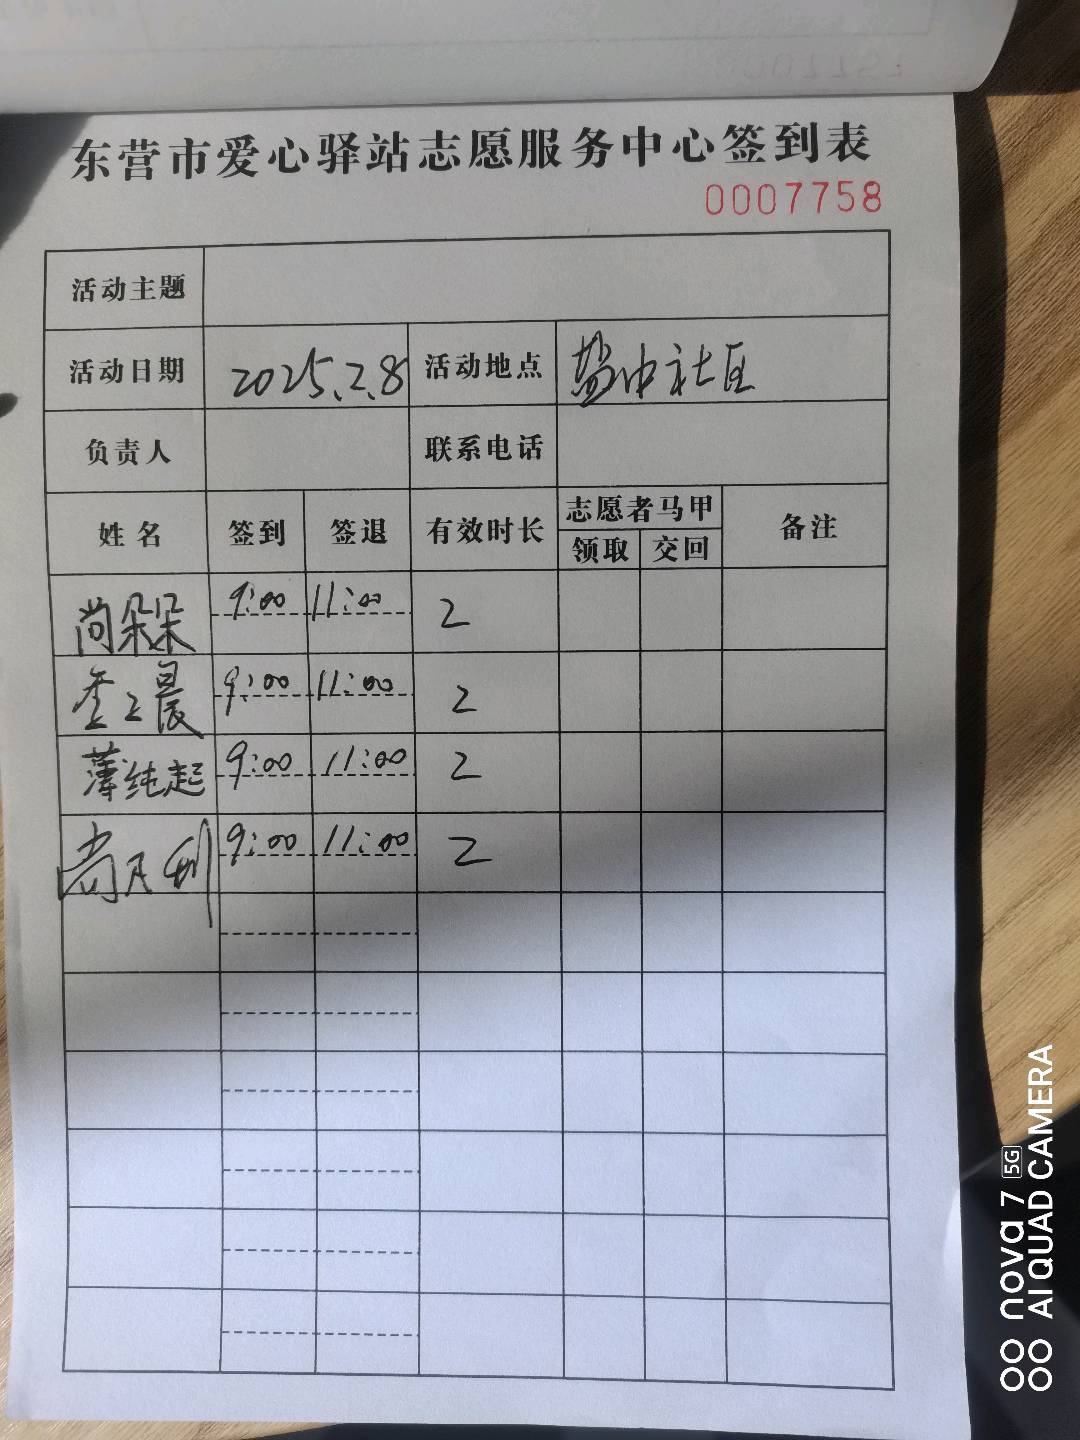 东营市爱心驿站志愿服务中心签到表
0007758
活动主题
活动日期 2025.2.8 活动地点 社区
负责人 联系电话
姓名 签到 签退 有效时长 志愿者马甲 备注
领取 交回
尚朵朵 9:00 11:00 2
晨 9:00 11:00 2
薄纯起 9:00 11:00 2
尚月 9:00 11:00 2
nova 7 5G
AI QUAD CAMERA